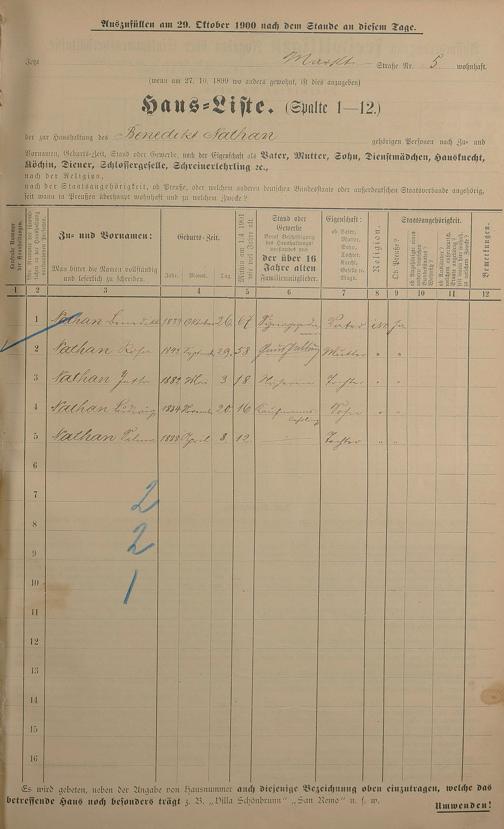 Auszufüllen am 29. Oktober 1900 nach dem Stande an diesem Tage.
Jetzt Markt Straße Nr. 5 wohnhaft.
(wenn am 27. 10. 1899 wo anders gewohnt, ist dies anzugeben)
Haus-Liste. (Spalte 1—12.)
der zur Haushaltung des Benedikt Nathan gehörigen Personen nach Zu- und
Vornamen, Geburts-Zeit, Stand oder Gewerbe, nach der Eigenschaft als Vater, Mutter, Sohn, Dienstmädchen, Hausknecht,
Köchin, Diener, Schlossergeselle, Schreinerlehrling ec.,
nach der Religion,
nach der Staatsangehörigkeit, ob Preuße, oder welchem anderen deutschen Bundesstaate oder außerdeutschen Staatsverbande angehörig,
seit wann in Preußen überhaupt wohnhaft und zu welchem Zwecke?
Zu- und Vornamen:
Man bittet die Namen vollständig
und leserlich zu schreiben.
Geburts-Zeit.
Jahr. Monat. Tag.
Stand oder
Gewerbe
der über 16
Jahre alten
Familienglieder.
Eigenschaft:
ob Vater,
Mutter,
Sohn,
Tochter,
Knecht,
Geselle o.
Magd.
Religion.
Ob Preuße?
Staatsangehörigkeit.
Bemerkungen.
1 2 3 4 5 6 7 8 9 10 11 12
1 Nathan Benedikt 1833 Oktober 26 67 Vater isr. Ja
2 Nathan Rosa September 29 58 Haushaltung Mutter " "
3 Nathan 1882 Mai 3 18 Tochter " "
4 Nathan Ludwig 1884 November 20 16 Kaufmanns Sohn " "
5 Nathan Selma 1888 April 8 12 — Tochter " "
6
7
2
8
2
9
10
1
11
12
13
14
15
16
Es wird gebeten, neben der Angabe von Hausnummer auch diejenige Bezeichnung oben einzutragen, welche das
betreffende Haus noch besonders trägt z. B. „Villa Schönbrunn" „San Remo" u. s. w.
Umwenden!